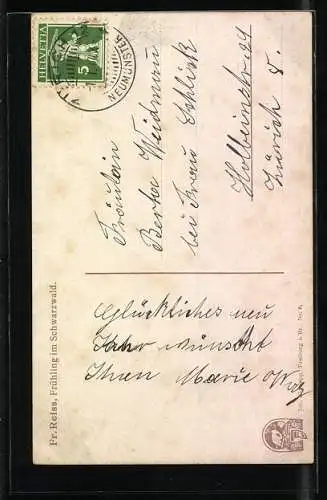 HELVETIA
5
NEUMÜNSTER
Fräulein
Bertha Weidmann
bei Frau Schlick
Holbeinstrasse
Zürich 8.
Glückliches neu
Jahr wünscht
Ihnen Marie
Fr. Reiss, Frühling im Schwarzwald.